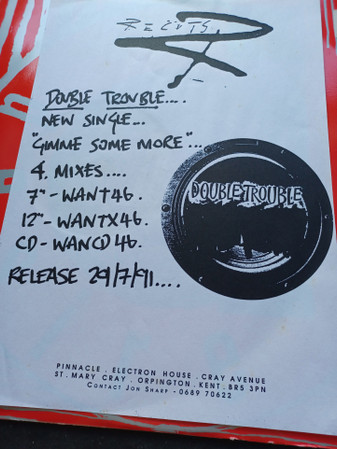 RECUTS
DOUBLE TROUBLE....
NEW SINGLE...
"GIMME SOME MORE"...
4. MIXES....
7"-WANT46.
12"-WANTX46.
CD-WANCD46.
RELEASE 29/7/91....
DOUBLE TROUBLE
PINNACLE . ELECTRON HOUSE . CRAY AVENUE
ST. MARY CRAY . ORPINGTON . KENT . BR5 3PN
CONTACT JON SHARP - 0689 70622